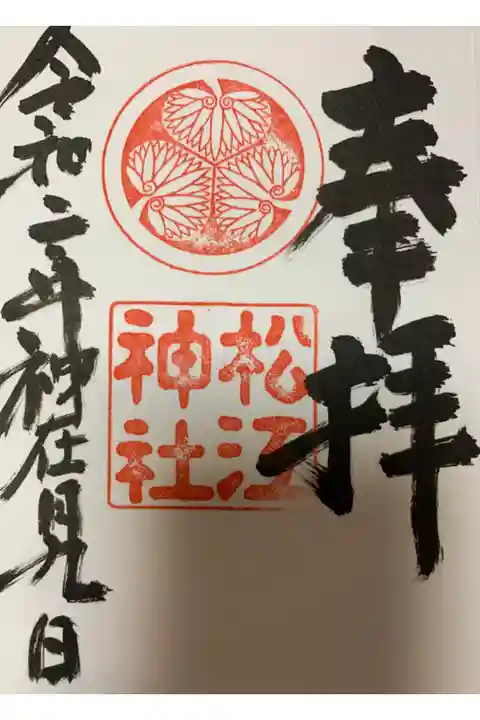 奉拝
松江
神社
令和二年神在月日